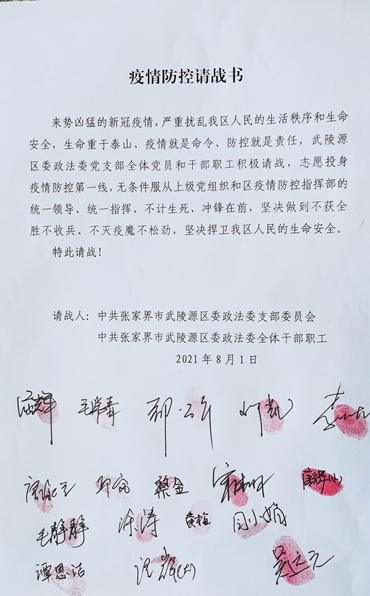 疫情防控请战书
来势凶猛的新冠疫情，严重扰乱我区人民的生活秩序和生命
安全，生命重于泰山、疫情就是命令、防控就是责任，武陵源
区委政法委党支部全体党员和干部职工积极请战，志愿投身
疫情防控第一线，无条件服从上级党组织和区疫情防控指挥部的
统一领导、统一指挥、不计生死、冲锋在前，坚决做到不获全
胜不收兵、不灭疫魔不松劲，坚决捍卫我区人民的生命安全。
特此请战！
请战人：中共张家界市武陵源区委政法委支部委员会
中共张家界市武陵源区委政法委全体干部职工
2021年8月1日
毛静静
谭思洁